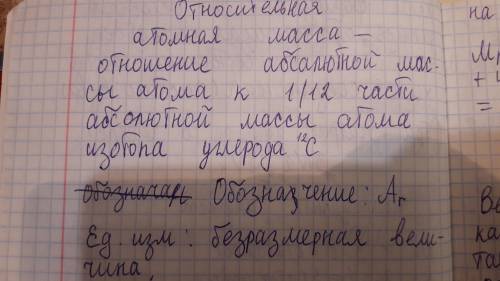 Относительная
атомная масса —
отношение абсалютной мас-
сы атома к 1/12 части
абсолютной массы атома
изотопа углерода ¹²C
обозначен Обозначение: Ar
Ед. изм: безразмерная вели-
чина
на
Mr
+
=
Ве
ка
та